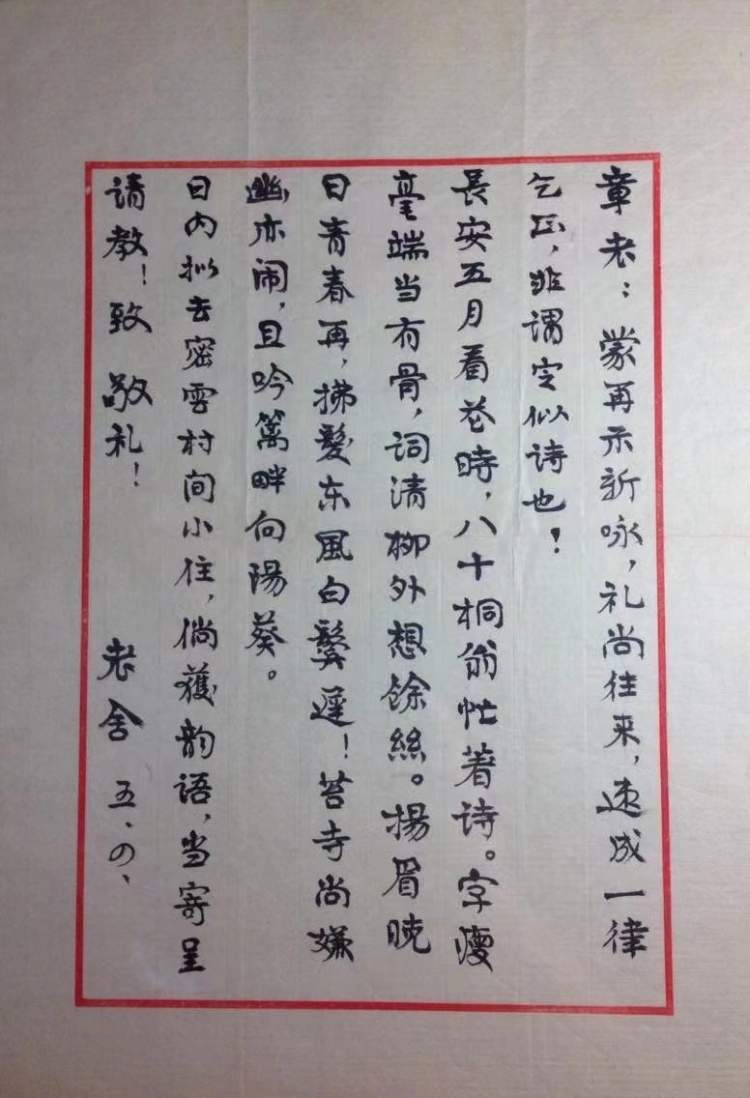 章老：蒙再示新咏，礼尚往来，速成一律
乞正，非谓定似诗也！
長安五月看花時，八十桐翁忙著诗。字瘦
毫端当有骨，词清柳外想馀絲。揚眉晓
日青春再，拂髮东風白鬓遲！苔寺尚嫌
幽亦闹，且吟篱畔向陽葵。
日内拟去密雲村间小住，倘獲韵语，当寄呈
请教！致 敬礼！ 老舍 五、の、